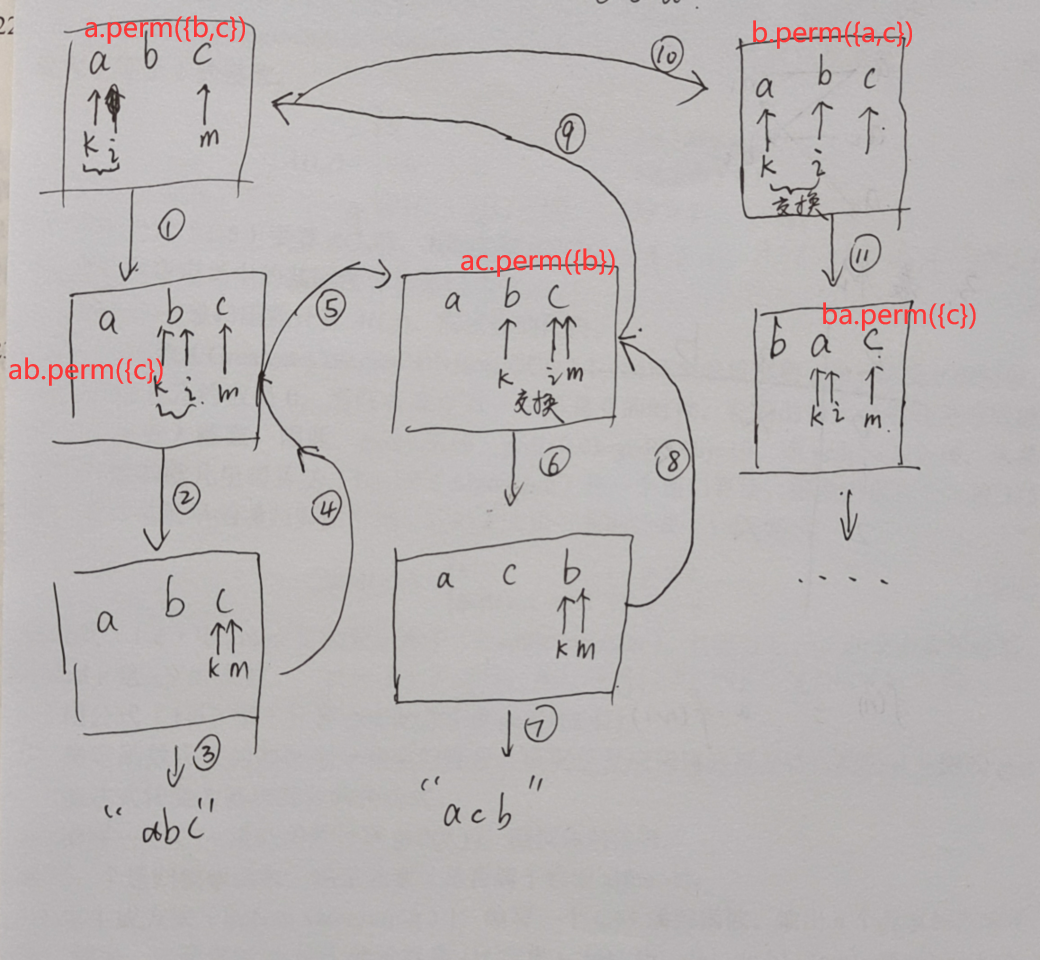 22
a.perm({b,c})
a b c
k i m
①
a b c
ab.perm({c})
k i. m
②
a b c
k m
③
"abc"
④
⑤
ac.perm({b})
a b c
k i m
交换
⑥
a c b
k m
⑦
"acb"
⑧
⑨
⑩
b.perm({a,c})
a b c
k i
交换
⑪
ba.perm({c})
b a c
k i m
....